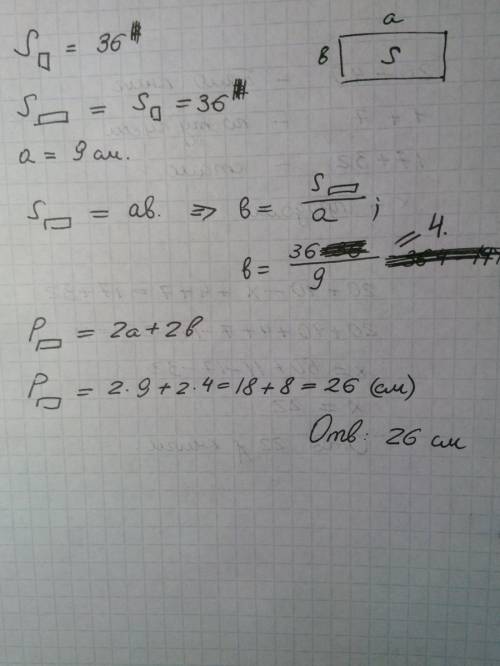 a
S□ = 36
в S
S▭ = S□ = 36
a = 9 см.
S▭ = ав. ⇒ в = S▭/a ;
в = 36/9 = 4.
P▭ = 2а + 2в
P▭ = 2·9 + 2·4 = 18 + 8 = 26 (см)
Отв: 26 см